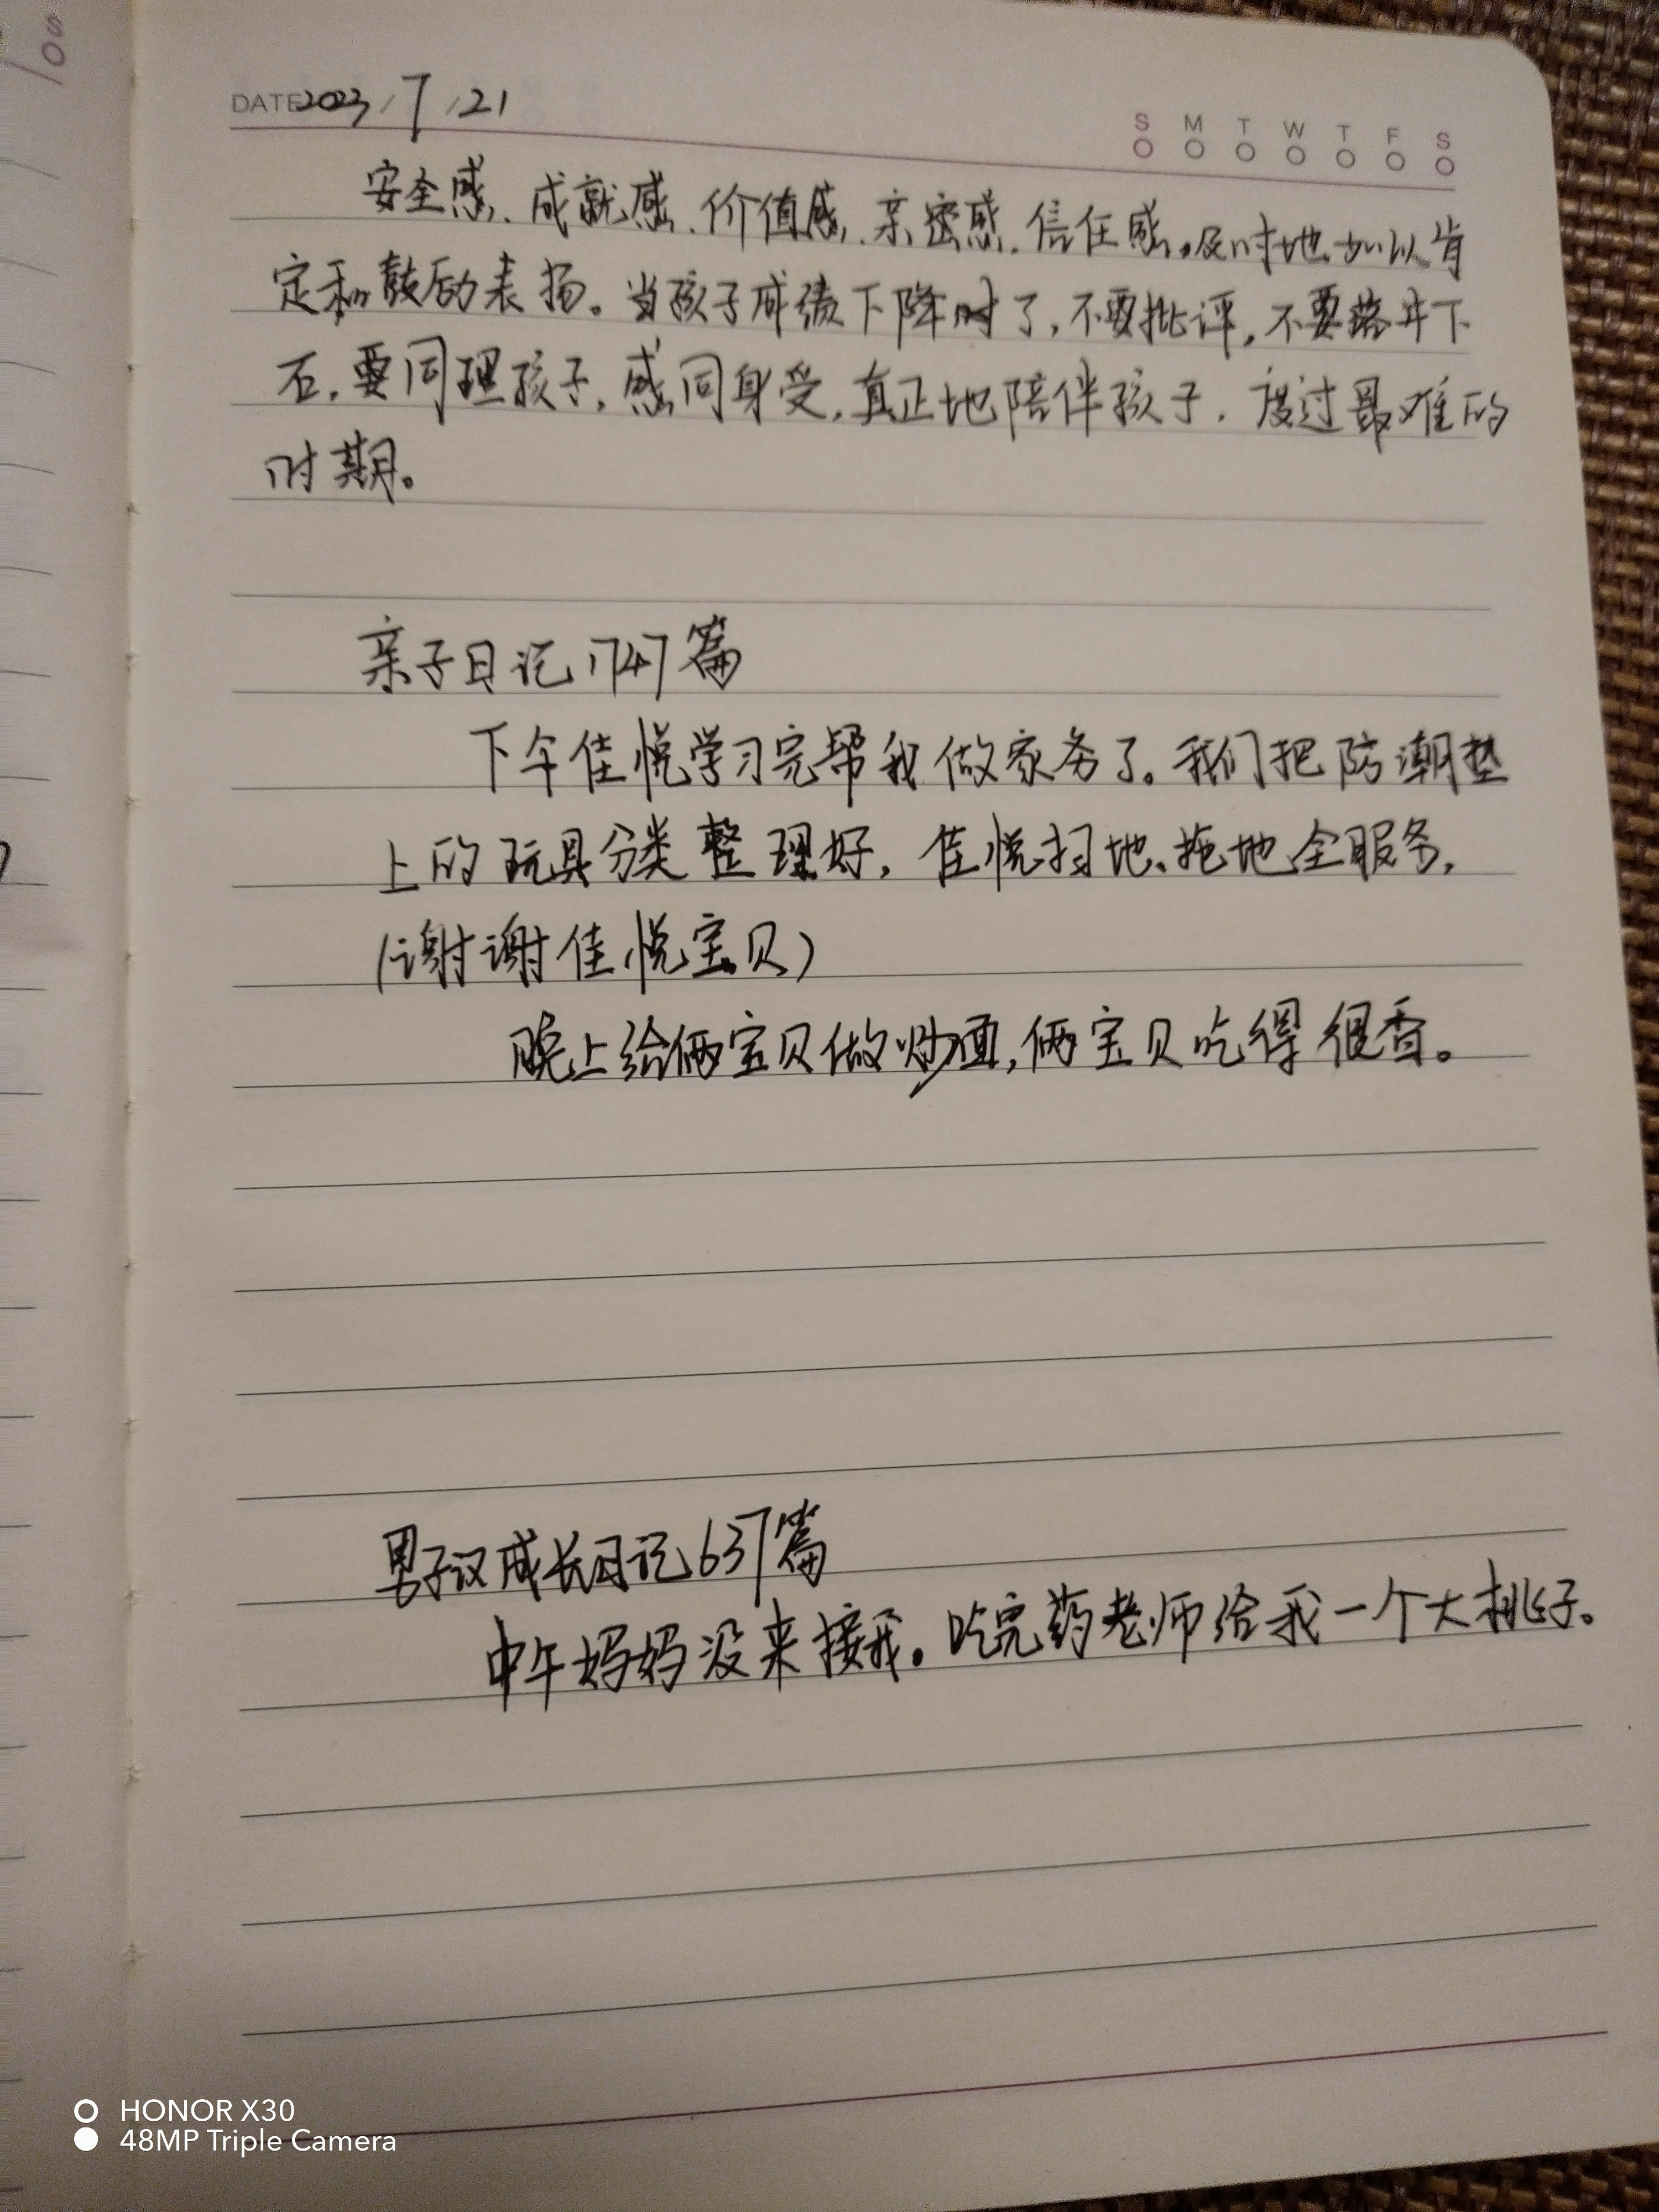 DATE 2023/7/21
S M T W T F S
安全感、成就感、价值感、亲密感、信任感。及时地加以肯
定和鼓励表扬。当孩子成绩下降时了,不要批评,不要落井下
石,要同理孩子,感同身受,真正地陪伴孩子,度过最难的
时期。
亲子日记1747篇
下午佳悦学习完帮我做家务了。我们把防潮垫
上的玩具分类整理好,佳悦扫地、拖地全服务,
(谢谢佳悦宝贝)
晚上给俩宝贝做炒面,俩宝贝吃得很香。
男子汉成长日记637篇
中午妈妈没来接我。吃完药老师给我一个大桃子。
HONOR X30
48MP Triple Camera